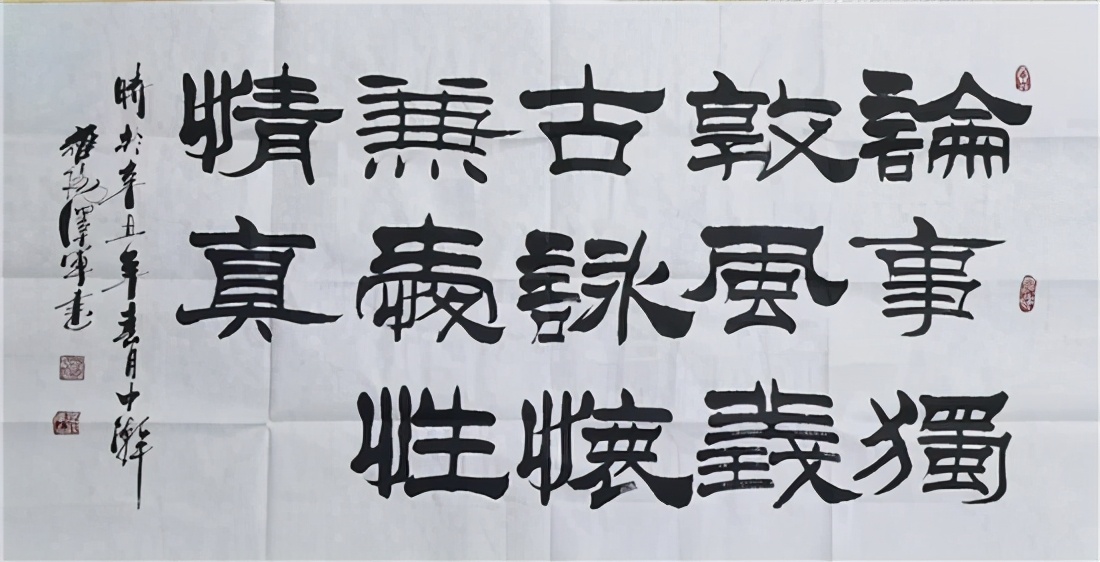 論事獨
敦風義
古詠懷
兼養性
情真
時於辛丑年春月中澣
澤軍書